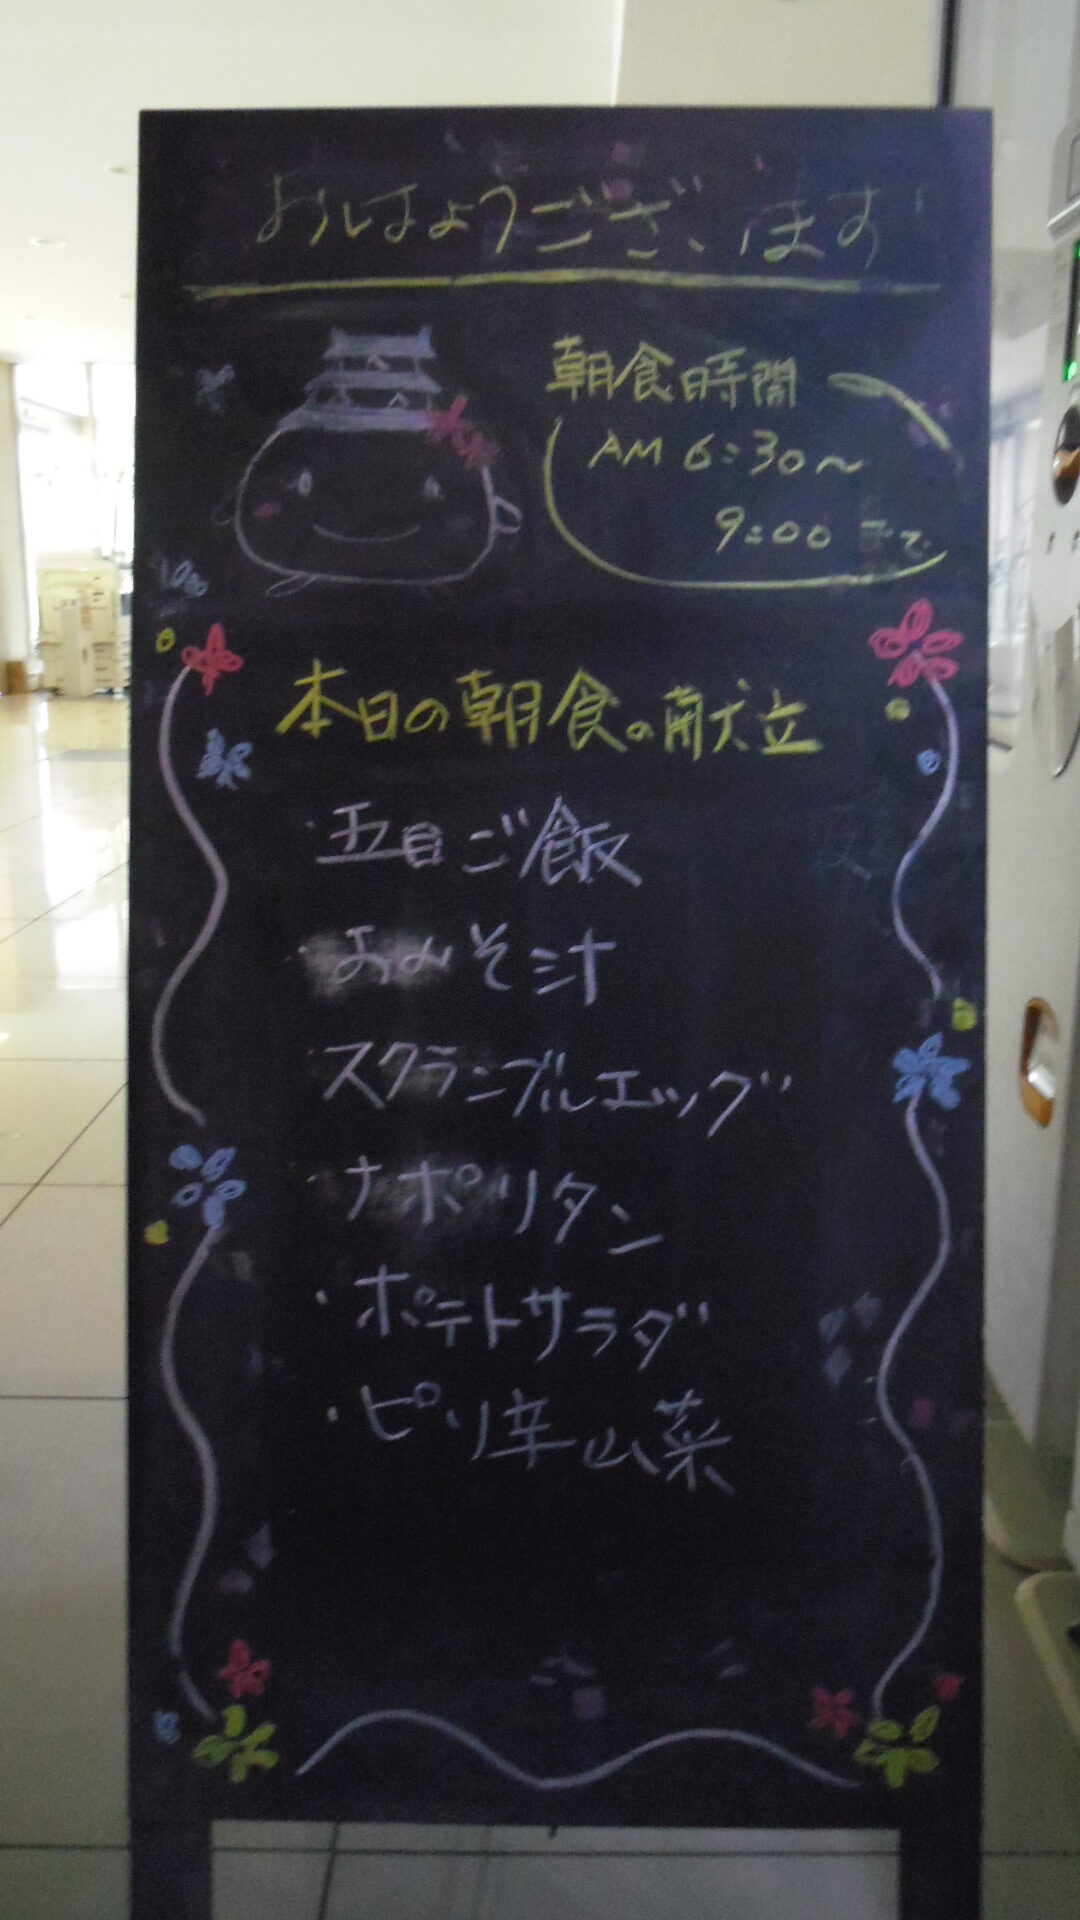 おはようございます
朝食時間
AM 6:30～
9:00まで
本日の朝食の献立
・五目ご飯
・おみそ汁
・スクランブルエッグ
・ナポリタン
・ポテトサラダ
・ピリ辛山菜